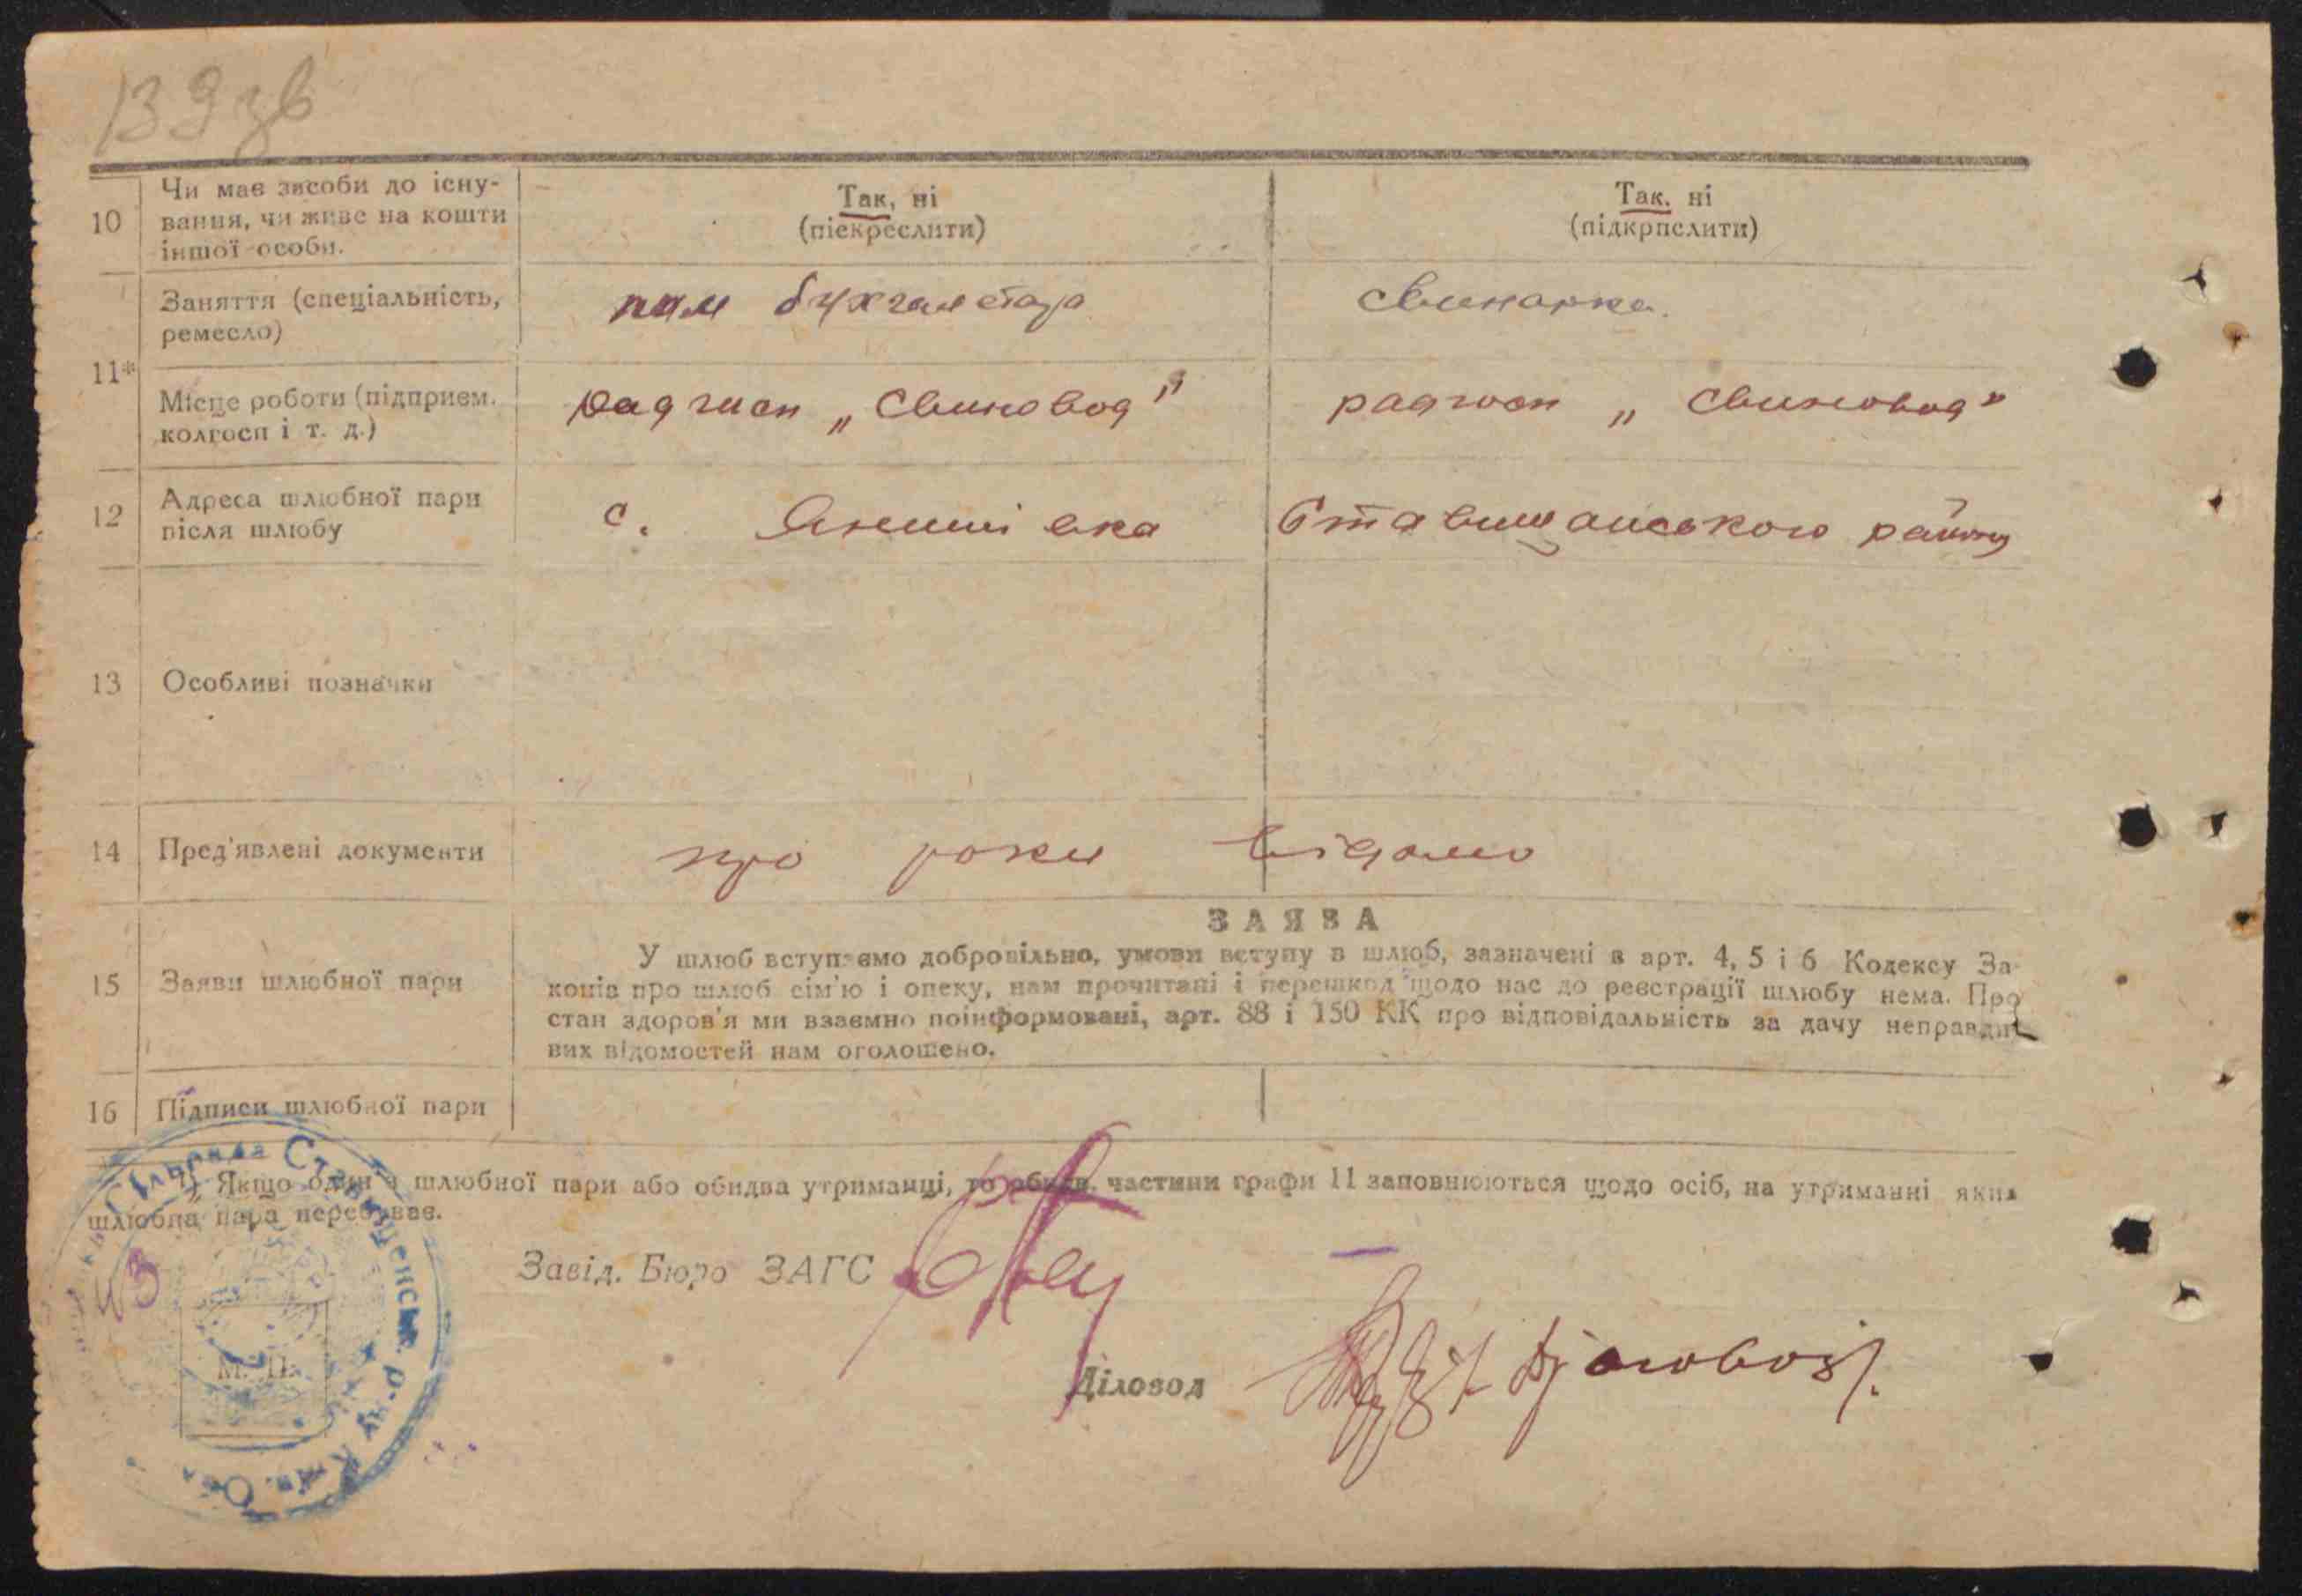 139 зв
10 Чи має засоби до існу-
вання, чи живе на кошти
іншої особи.
Так, ні
(піекреслити)
Так. ні
(підкрпслити)
11*
Заняття (спеціальність,
ремесло)
пом бухгалтера
свинарка.
Місце роботи (підприєм.
колгосп і т. д.)
радгосп „Свиновод"
радгосп „Свиновод"
12 Адреса шлюбної пари
після шлюбу
с. Янишівка Ставищанського району
13 Особливі позначки
14 Пред'явлені документи
про роки відомо
15 Заяви шлюбної пари
ЗАЯВА
У шлюб вступаємо добровільно, умови вступу в шлюб, зазначені в арт. 4, 5 і 6 Кодексу За-
конів про шлюб сім'ю і опеку, нам прочитані і перешкод щодо нас до реєстрації шлюбу нема. Про
стан здоров'я ми взаємно поінформовані, арт. 88 і 150 КК про відповідальність за дачу неправди-
вих відомостей нам оголошено.
16 Підписи шлюбної пари
Якщо один з шлюбної пари або обидва утриманці, то обидві частини графи 11 заповнюються щодо осіб, на утриманні яких
шлюбна пара перебуває.
Завід. Бюро ЗАГС
Діловод
М. П.
Сільрада Ставищенськ. р-ну Київ. Обл.